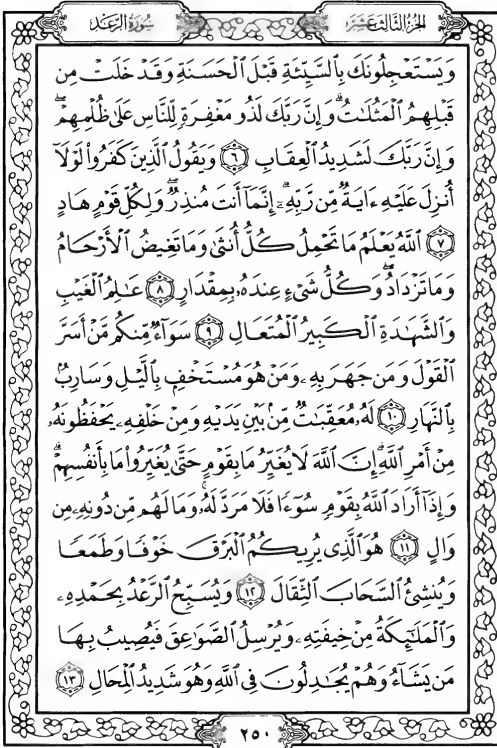 الجزء الثالث عشر
سورة الرعد
وَيَسْتَعْجِلُونَكَ بِالسَّيِّئَةِ قَبْلَ الْحَسَنَةِ وَقَدْ خَلَتْ مِن
قَبْلِهِمُ الْمَثُلَاتُ ۗ وَإِنَّ رَبَّكَ لَذُو مَغْفِرَةٍ لِّلنَّاسِ عَلَىٰ ظُلْمِهِمْ ۖ
وَإِنَّ رَبَّكَ لَشَدِيدُ الْعِقَابِ ٦ وَيَقُولُ الَّذِينَ كَفَرُوا لَوْلَا
أُنزِلَ عَلَيْهِ ءَايَةٌ مِّن رَّبِّهِ ۗ إِنَّمَا أَنتَ مُنذِرٌ ۖ وَلِكُلِّ قَوْمٍ هَادٍ
٧ اللَّهُ يَعْلَمُ مَا تَحْمِلُ كُلُّ أُنثَىٰ وَمَا تَغِيضُ الْأَرْحَامُ
وَمَا تَزْدَادُ ۖ وَكُلُّ شَيْءٍ عِندَهُ بِمِقْدَارٍ ٨ عَالِمُ الْغَيْبِ
وَالشَّهَادَةِ الْكَبِيرُ الْمُتَعَالِ ٩ سَوَاءٌ مِّنكُم مَّنْ أَسَرَّ
الْقَوْلَ وَمَن جَهَرَ بِهِ وَمَنْ هُوَ مُسْتَخْفٍ بِاللَّيْلِ وَسَارِبٌ
بِالنَّهَارِ ١٠ لَهُ مُعَقِّبَاتٌ مِّن بَيْنِ يَدَيْهِ وَمِنْ خَلْفِهِ يَحْفَظُونَهُ
مِنْ أَمْرِ اللَّهِ ۗ إِنَّ اللَّهَ لَا يُغَيِّرُ مَا بِقَوْمٍ حَتَّىٰ يُغَيِّرُوا مَا بِأَنفُسِهِمْ ۗ
وَإِذَا أَرَادَ اللَّهُ بِقَوْمٍ سُوءًا فَلَا مَرَدَّ لَهُ ۚ وَمَا لَهُم مِّن دُونِهِ مِن
وَالٍ ١١ هُوَ الَّذِي يُرِيكُمُ الْبَرْقَ خَوْفًا وَطَمَعًا
وَيُنشِئُ السَّحَابَ الثِّقَالَ ١٢ وَيُسَبِّحُ الرَّعْدُ بِحَمْدِهِ
وَالْمَلَائِكَةُ مِنْ خِيفَتِهِ وَيُرْسِلُ الصَّوَاعِقَ فَيُصِيبُ بِهَا
مَن يَشَاءُ وَهُمْ يُجَادِلُونَ فِي اللَّهِ وَهُوَ شَدِيدُ الْمِحَالِ ١٣
٢٥٠